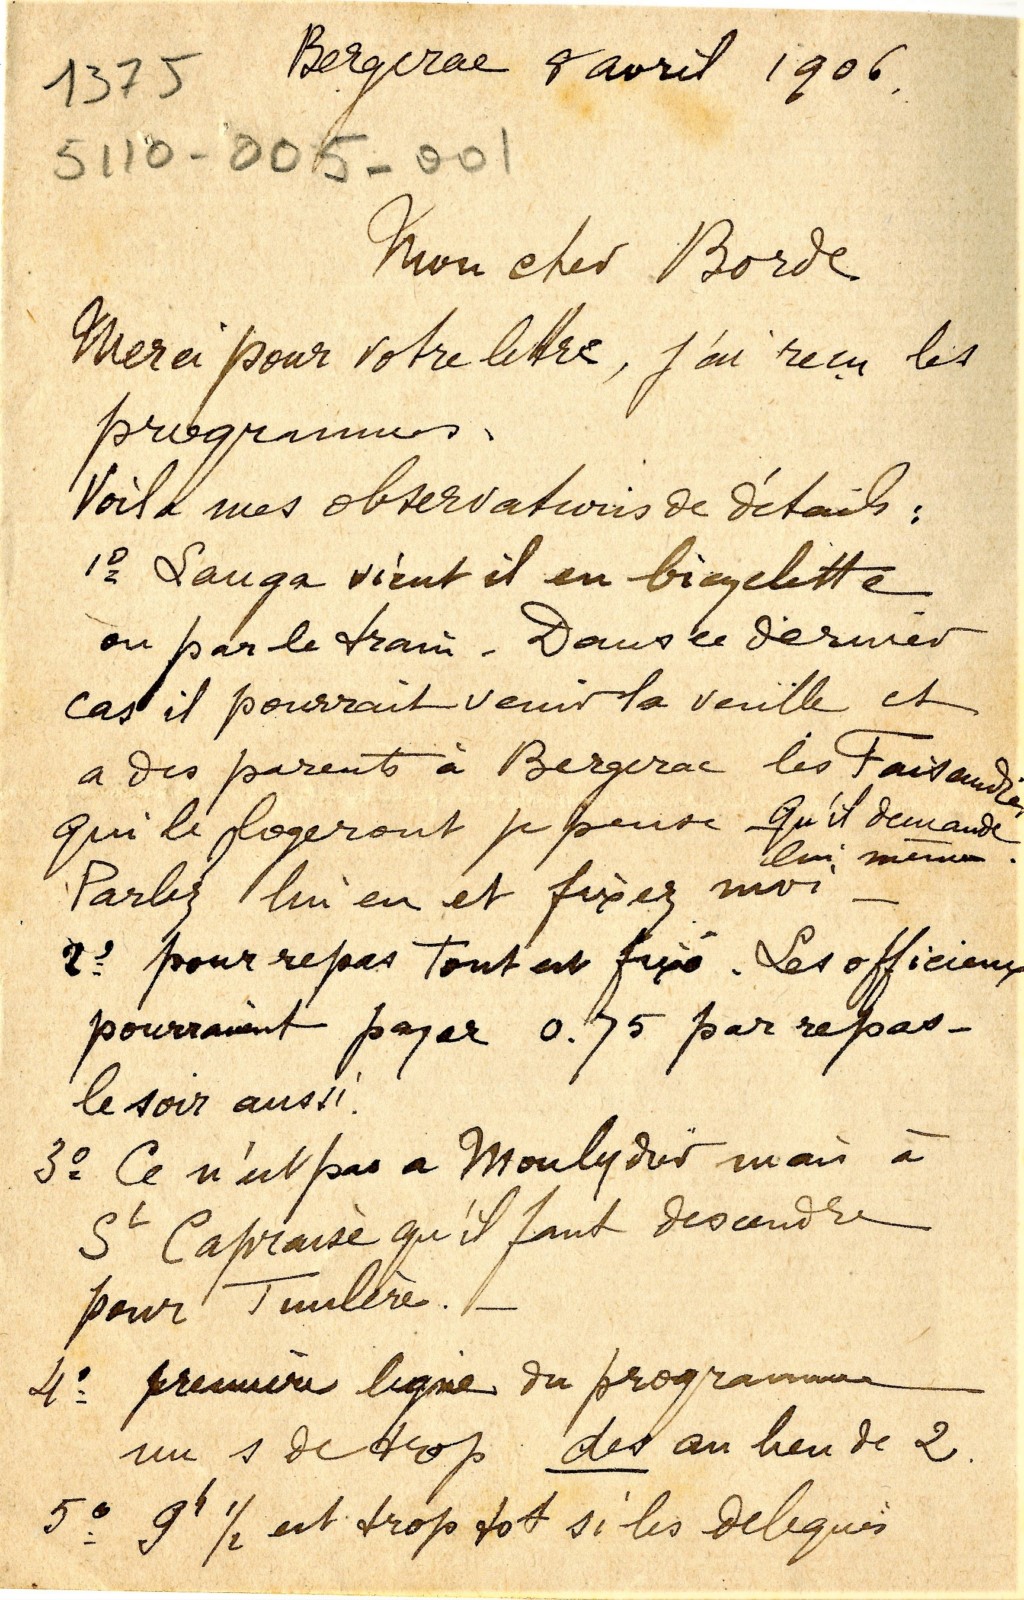 Bergerac 8 avril 1906.
1375
5110-005-001
Mon cher Borde
Merci pour votre lettre, j'ai reçu les
programmes.
Voilà mes observations de détails :
1º Lauga vient il en bicyclette
ou par le train - Dans ce dernier
cas il pourrait venir la veille et
a des parents à Bergerac les Faisandier
qui le logeront je pense - qu'il demande
lui même.
Parlez lui en et fixez moi -
2º pour repas tout est fixé. Les officieux
pourraient payer 0.75 par repas -
le soir aussi.
3º Ce n'est pas a Mouleydier mais à
St Capraise qu'il faut descendre
pour Tuilière. -
4º première ligne du programme
un s de trop des au lieu de 2.
5º 9h 1/2 est trop tot si les délégués